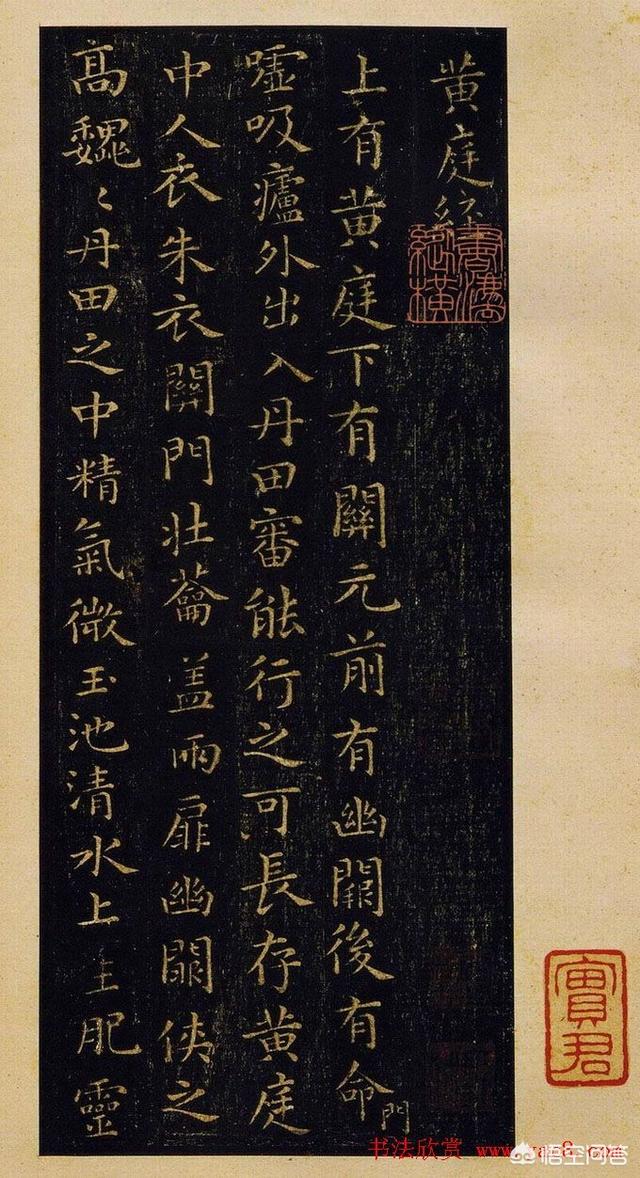 黄庭經
上有黄庭下有關元前有幽闕後有命門
嘘吸廬外出入丹田審能行之可長存黄庭
中人衣朱衣關門壯蘥盖兩扉幽闕俠之
高巍〻丹田之中精氣微玉池清水上生肥靈
寶君
书法欣赏
悟空问答